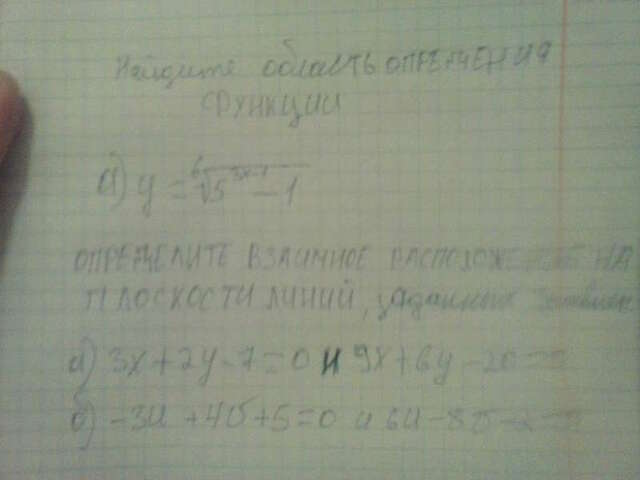 Найдите область определения
функции
а) y = ⁶√5³ˣ⁻¹ - 1
ОПРЕДЕЛИТЕ ВЗАИМНОЕ РАСПОЛОЖЕНИЕ НА
ПЛОСКОСТИ ЛИНИЙ, заданных
а) 3x+2y-7=0 и 9x+6y-20=0
б) -3u+4v+5=0 и 6u-8v